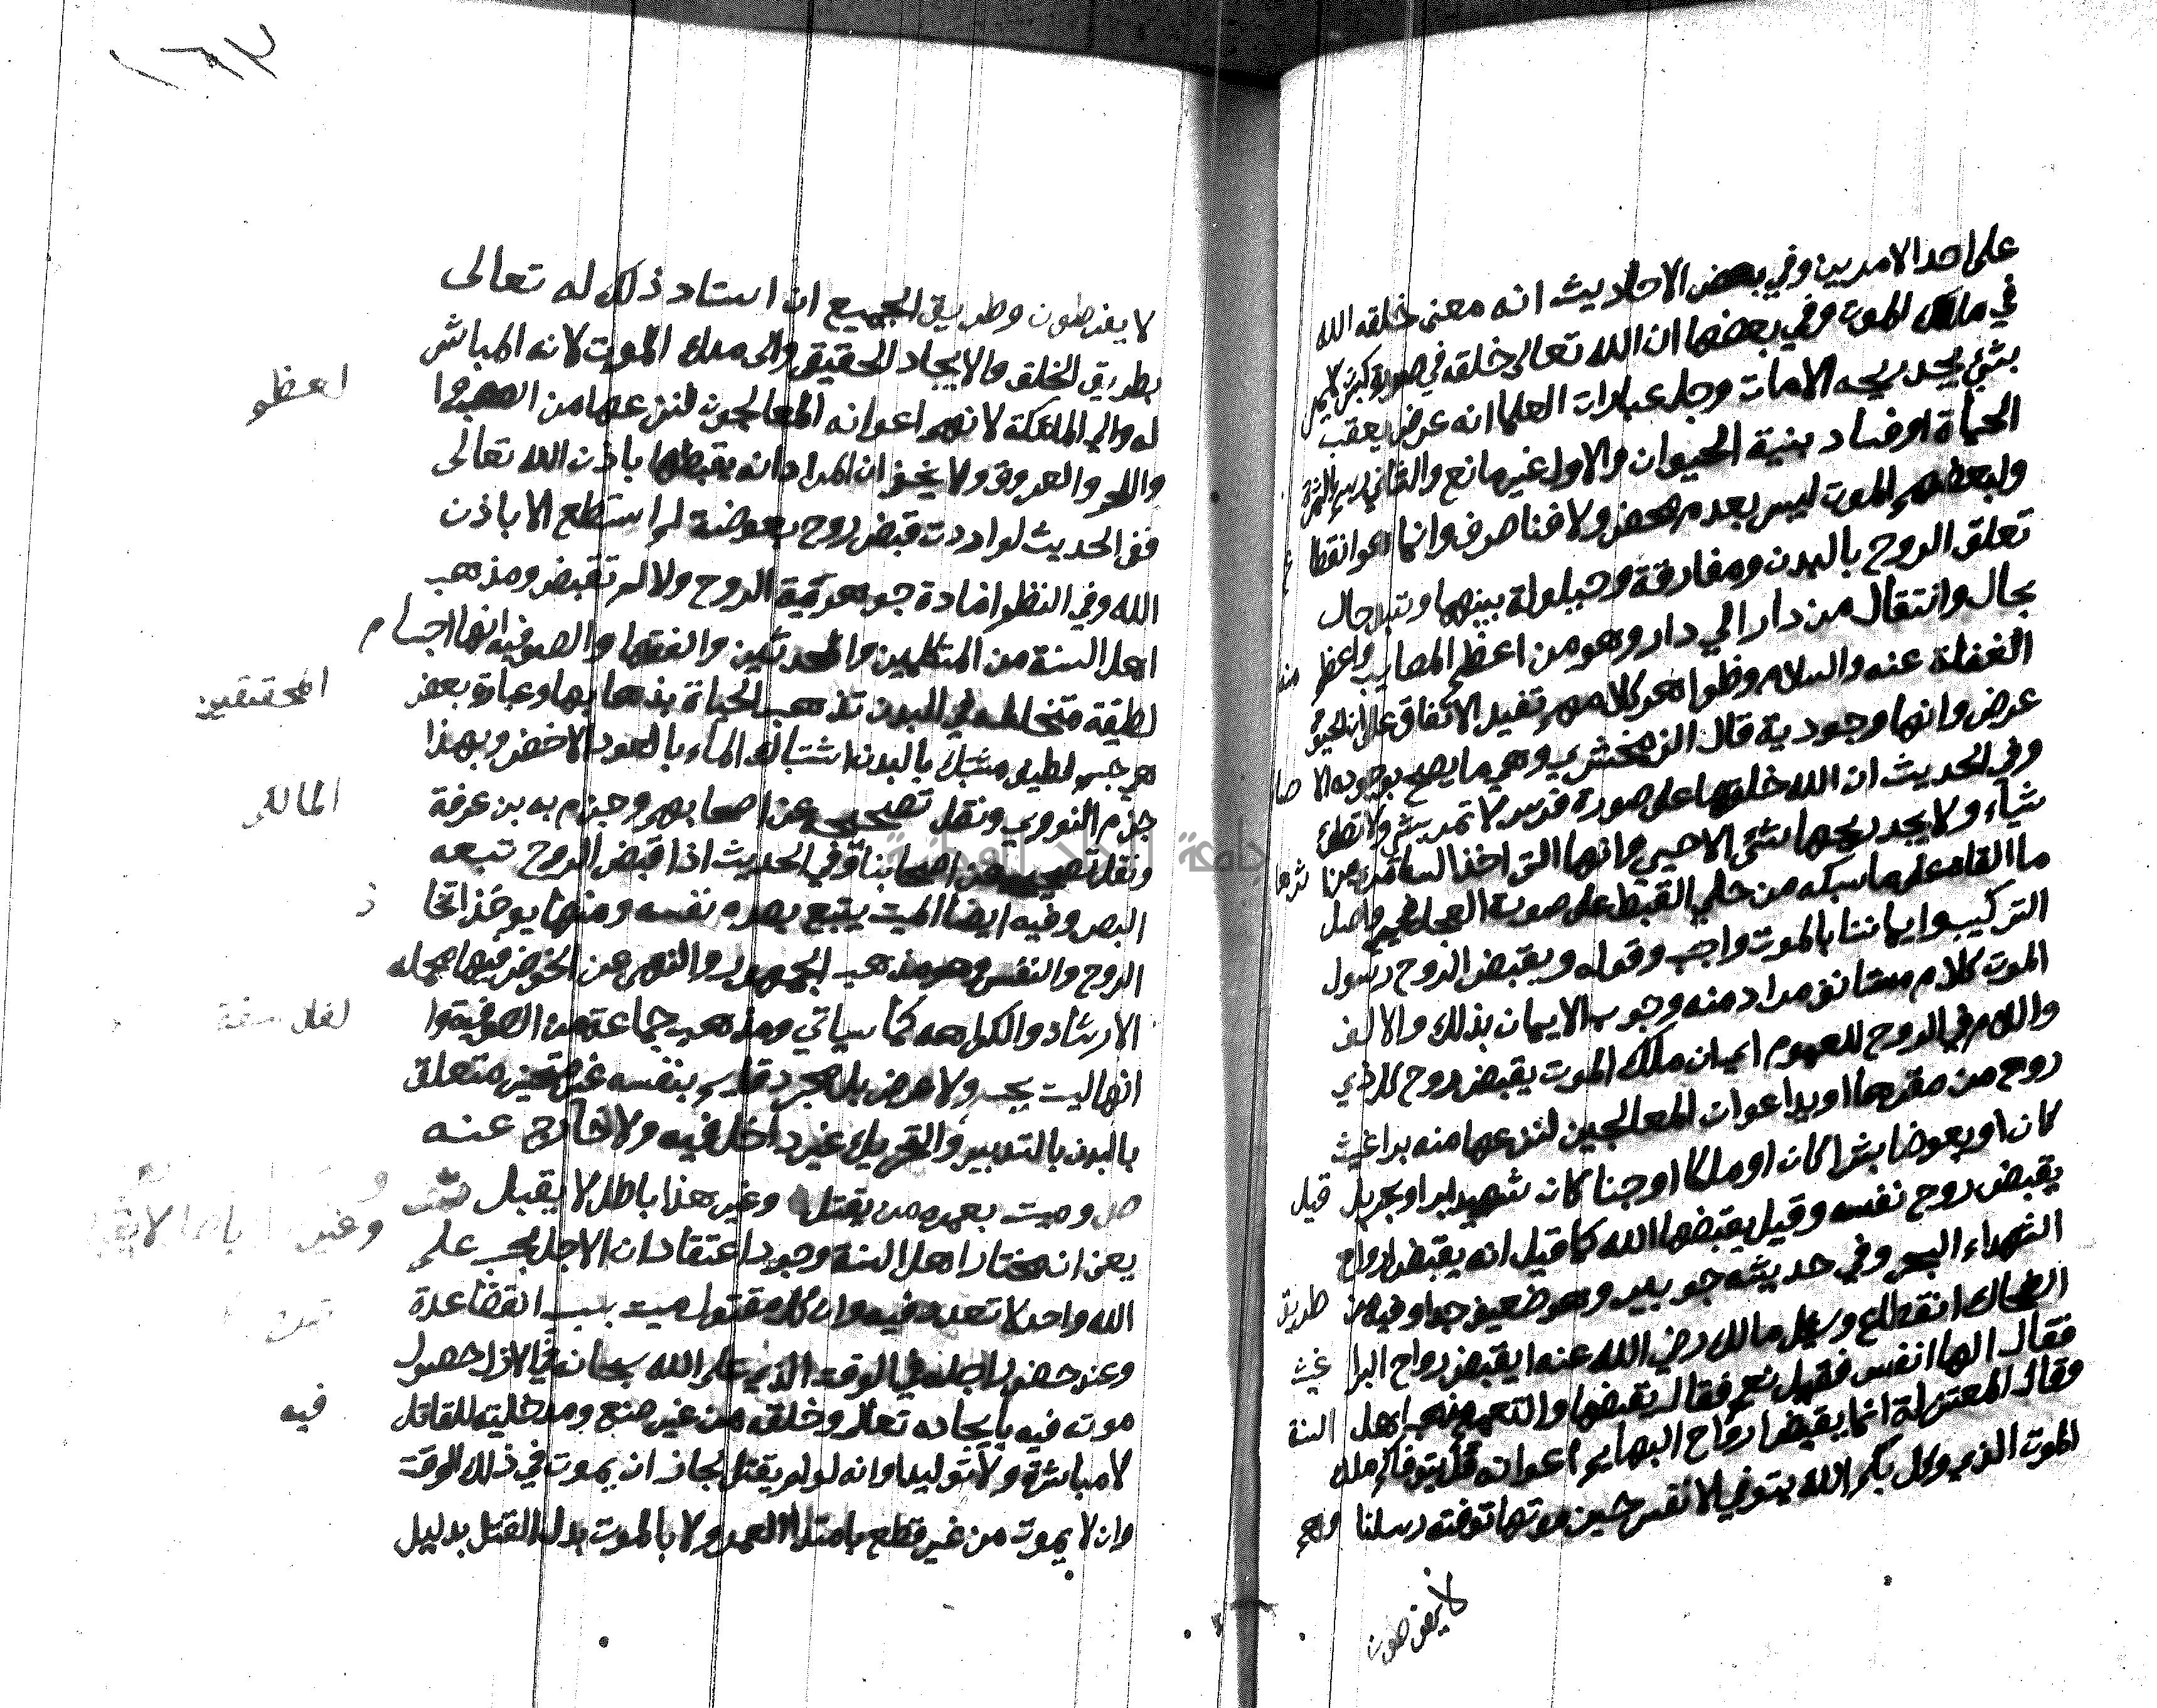 على احد الامرين وفي بعض الاحاديث انه معنى خلقه الله
في ملك الموت وفي بعضها ان الله تعالى خلقه في صورة كبش لا يمر
بشئ يجد ريحه الا مات وجل عبارات العلما انه عرض يعقب
الحياة او فساد بنية الحيوان والاول غير مانع والثاني رسم بالثمرة
ولبعضهم الموت ليس بعدم محض ولا فنا صرف وانما هو انقطاع
تعلق الروح بالبدن ومفارقة وحيلولة بينهما وتبدل حال
بحال وانتقال من دار الي دار وهو من اعظم المصايب واعظم منه
الغفلة عنه والسلام وظواهر كلامهم تفيد الاتفاق على ان الحيوة
عرض وانها وجودية قال الزمخشري وهي ما يصح بوجوده الاحساس
وفي الحديث ان الله خلقها على صورة فرس لا تمر بشئ ولا تطئ
شياء ولا يجد ريحها شئ الا حيي وانها التي اخذ السامري من اثرها
ما القاه على ما سبكه من حلي القبط على صورة العجل فحيي وحاصل
التركيب وايماننا بالموت واجب وقوله ويقبض الروح رسول
الموت كلام مستانف مراد منه وجوب الايمان بذلك والالف
واللام في الروح للعموم اي ان ملك الموت يقبض روح كل ذي
روح من مقرها او يد اعوان المعالجين لنزعها منه براغيث
كان او بعوضا بشرا كان او ملكا او جنا كان شهيد بر او بحر بل قيل
يقبض روح نفسه وقيل يقبضها الله كما قيل انه يقبض ارواح
الشهداء البحر وفي حديثه جويبر وهو ضعيف جدا وفيه من طريق
الضحاك انقطاع وسئل مالك رضي الله عنه ايقبض رواح البراغيث
فقال الها انفس فقيل نعم فقال يقبضها والتعميم مذهب اهل السنة
وقال المعتزلة انما يقبض ارواح البهايم اعوانه قل يتوفاكم ملك
الموت الذي وكل بكم الله يتوفي الانفس حين موتها توفته رسلنا وهم
لا يفرطون
١٦٣
لا يفرطون وطريق الجميع ان اسناد ذلك له تعالى
بطريق الخلق والايجاد الحقيقي والى ملك الموت لانه المباشر
له والي الملئكة لانهم اعوانه المعالجون لنزعها من العصب والعظم
واللحم والعروق ولا يخفى ان المراد انه يقبضها باذن الله تعالى
ففي الحديث لو اردت قبض روح بعوضة لم استطع الا باذن
الله وفي النظم افادة جوهرية الروح والا لم تقبض ومذهب
اهل السنة من المتكلمين والمحدثين والفقها والصوفية انها اجسام
لطيفة متخللة في البدن تذهب الحياة بذهابها وعبارة بعض المحققين
هي جسم لطيف مشتبك بالبدن اشتباك الماء بالعود الاخضر وبهذا
جزم النووي ونقل تصحيحه عن اصحابهم وجزم به بن عرفة المالكي
ونقل تصحيحه عن اصحابنا وفي الحديث اذا قبض الروح تبعه
البصر وفيه ايضا الميت يتبع بصره نفسه ومنها يوخذ اتحاد
الروح والنفس وهو مذهب الجمهور والنهي عن الخوض فيها محمله
الارشاد والكراهه كما سياتي ومذهب جماعة من الصوفية والفلاسفة
انها ليست بجسم ولا عرض بل مجرد قايم بنفسه غير متحيز متعلق
بالبدن بالتدبير والتحريك غير داخل فيه ولا خارج عنه
ص وميت بعمره من يقتل وغير هذا باطل لا يقبل ش
يعني انه مختار اهل السنة وجوب اعتقاد ان الاجل بحسب علم
الله واحد لا تعدد فيه وان كل مقتول ميت بسبب انقضا عدة
وعند حضور اجله في الوقت الذي علم الله سبحانه في الازل حصول
موته فيه بايجاده تعالى وخلقه من غير صنع ومدخلية للقاتل فيه
لا مباشرة ولا توليدا وانه لو لم يقتل لجاز ان يموت في ذلك الوقت
وان لا يموت من غير قطع بامتداد العمر ولا بالموت بدل القتل بدليل